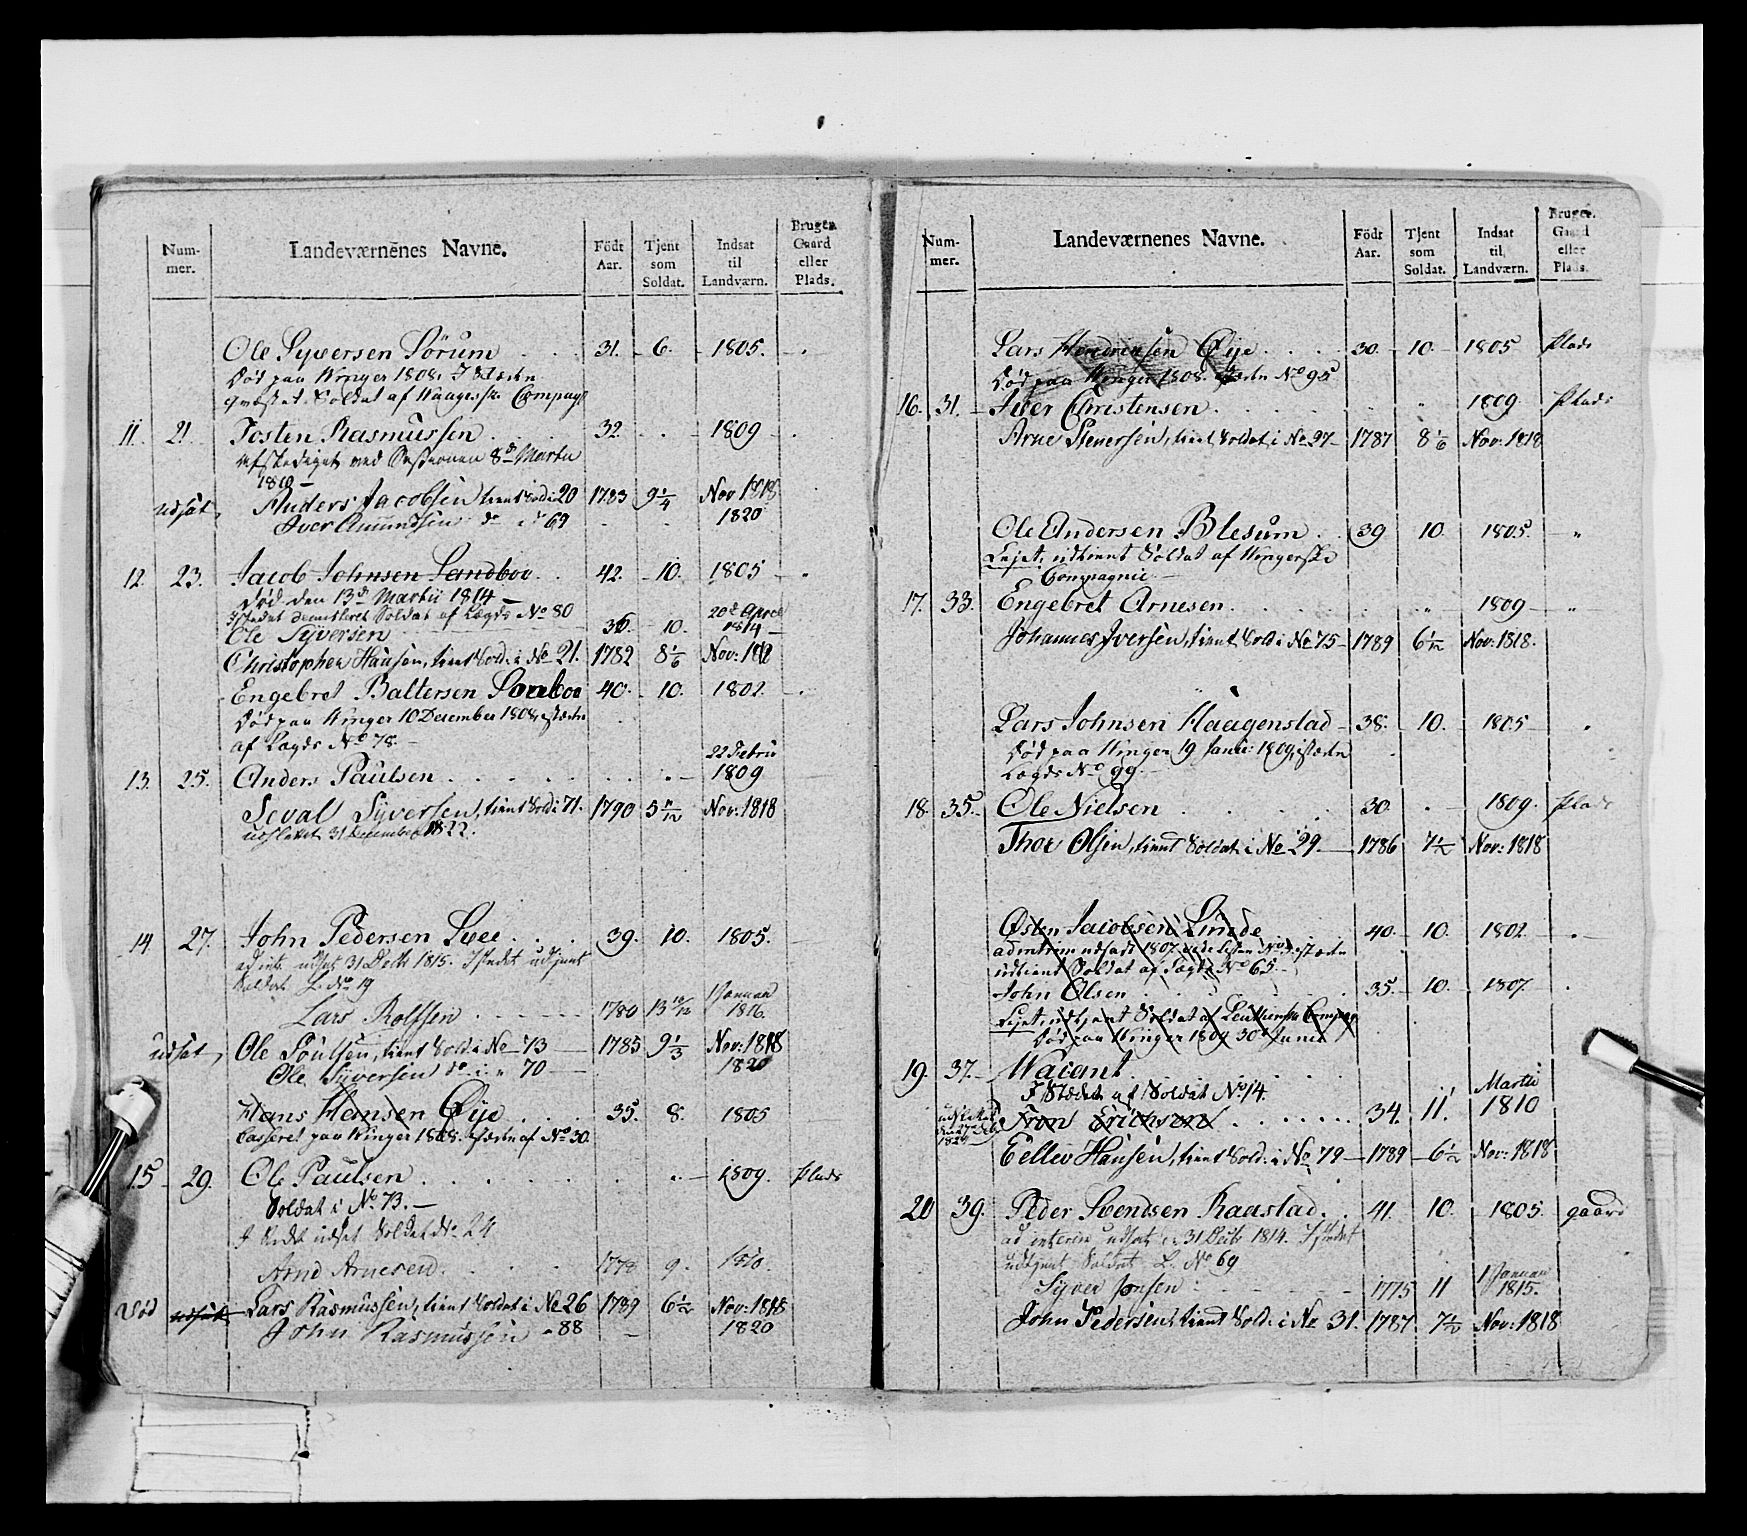 Num-mer. Landeværnenes Navne. Födt Aar. Tjent som Soldat. Indsat til Landværn. Bruger Gaard eller Plads.
Ole Syversen Sörum 31. 6. 1805.
Död paa Winger 1808. I Stædet
Soldat af Compag
11. 21 Tosten Rasmussen 32. 1809
Afskediget ved Sessionen 8de Martii
1810
udsat, Anders Jacobsen tient Sold i 20 1783 9 1/4 Nov 1818
Iver Amundsen do i 69 1820
12. 23. Jacob Johnsen Sandboe 42. 10. 1805
Död den 13de Martii 1814
Soldat af Lægds No 80 20de April
Ole Syversen 36. 10. 1814
Christopher Hansen, tient Sold: i No 21. 1782 8 1/6 Nov: 1818
Engebret Baltersen Sandboe 40. 10. 1802.
Död paa Winger 10 December 1808, istæden
af Lægds No 78. 22 Febru
13. 25. Anders Paulsen 1809
Seval Syversen, tient Sold i 71. 1790 5 11/12 Nov: 1818
udslettet 31 December 1822.
14. 27. John Pedersen Svee 39. 10. 1805.
ad int. udsat 31 Decbr 1815. Istedet udtjent
Soldat L. No 19
Lars Rolfsen 1780 13 10/12 1 Januar 1816.
udsat, Ole Poulsen, tient Sold. i No 73 1785 9 1/3 Nov: 1818
Ole Syversen do i " 70 1820
Hans Hansen Öÿe 35. 8. 1805
Casseret paa Winger 1808. istædn af No 30.
15 29. Ole Paulsen 1809. Plads
Soldat i No 73.
I Stedt udsat Soldat No 24
Arne Arnesen 1778 9. 1810.
Död udsat Lars Rasmussen, tient Soldat i No 26 1789 6 1/2 Nov: 1818
John Rasmussen " 88 1820
Num-mer. Landeværnenes Navne. Födt Aar. Tjent som Soldat. Indsat til Landværn. Bruger Gaard eller Plads.
Lars Hendrensen Öÿe 30. 10. 1805 Plads
Död paa Winger 1808. istædn No 95
16. 31. Iver Christensen 1809 Plads
Arne Sieversen, tient Soldat i No 27 1787 8 1/6 Nov: 1818
Ole Andersen Blesum 39 10. 1805.
Lejet, udtient Soldat af Wingerske
Compagnie
17. 33. Engebret Arnesen 1809
Johannes Iversen, tient Sold: i No 75 1789 6 1/12 Nov: 1818.
Lars Johnsen Haagenstad 38. 10. 1805
Död paa Winger 19 Janu: 1809, istædn
Lægds No 99.
18. 35. Ole Nielsen 30. 1809. Plads
Thor Olsen, tient Soldat i No 29. 1786 7 1/2 Nov: 1818
Östen Jacobsen Linde 40. 10. 1802
ad interim udsadt 1807 istædn
udtient Soldat af Lægds No 65.
John Olsen 35. 10. 1807.
Lejet, udtjent Soldat af Compag
Död paa Winger 1809 30te Junii
19 37. Wacant
I Stædet af Soldat No 14. Martii
Tron Erichsen 34. 11. 1810
Eellev Hansen, tient Sold: i No 79 1789 6 1/2 Nov: 1818
20 39. Peder Svendsen Raastad 41. 10. 1805. gaard
ad interim udsat 31 Decbr 1814. I stedet
udtjent Soldat L. No 69
Syver Jonsen 1775 11 1 Januar 1815.
John Pedersen, tient Sold: i No 31. 1787 7 1/2 Nov: 1818